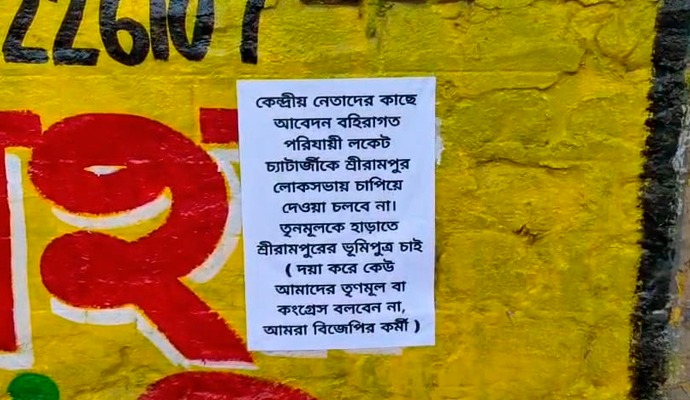 কেন্দ্রীয় নেতাদের কাছে
আবেদন বহিরাগত
পরিযায়ী লকেট
চ্যাটার্জীকে শ্রীরামপুর
লোকসভায় চাপিয়ে
দেওয়া চলবে না।
তৃনমূলকে হাড়াতে
শ্রীরামপুরের ভূমিপুত্র চাই
( দয়া করে কেউ
আমাদের তৃণমূল বা
কংগ্রেস বলবেন না,
আমরা বিজেপির কর্মী )